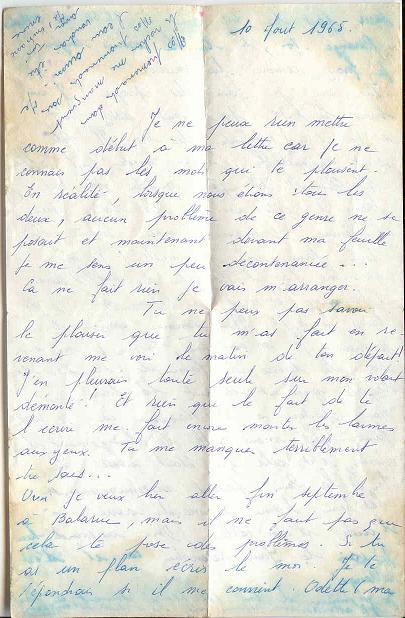 10 Août 1965.
Je ne peux rien mettre
comme début à ma lettre car je ne
connais pas les mots qui te plaisent.
En réalité, lorsque nous étions tous les
deux, aucun problème de ce genre ne se
posait et maintenant devant ma feuille
je me sens un peu décontenancée...
Ca ne fait rien je vais m'arranger.
Tu ne peux pas savoir
le plaisir que tu m'as fait en re-
venant me voir le matin de ton départ!
J'en pleurais toute seule sur mon volant
démonté! Et rien que le fait de te
l'écrire me fait encore monter les larmes
aux yeux. Tu me manques terriblement
tu sais...
Oui je veux bien aller fin septembre
à Balaruc, mais il ne faut pas que
cela te pose des problèmes. Si tu
as un plan écris le moi. Je te
répondrais si il me convient. Odette (ma